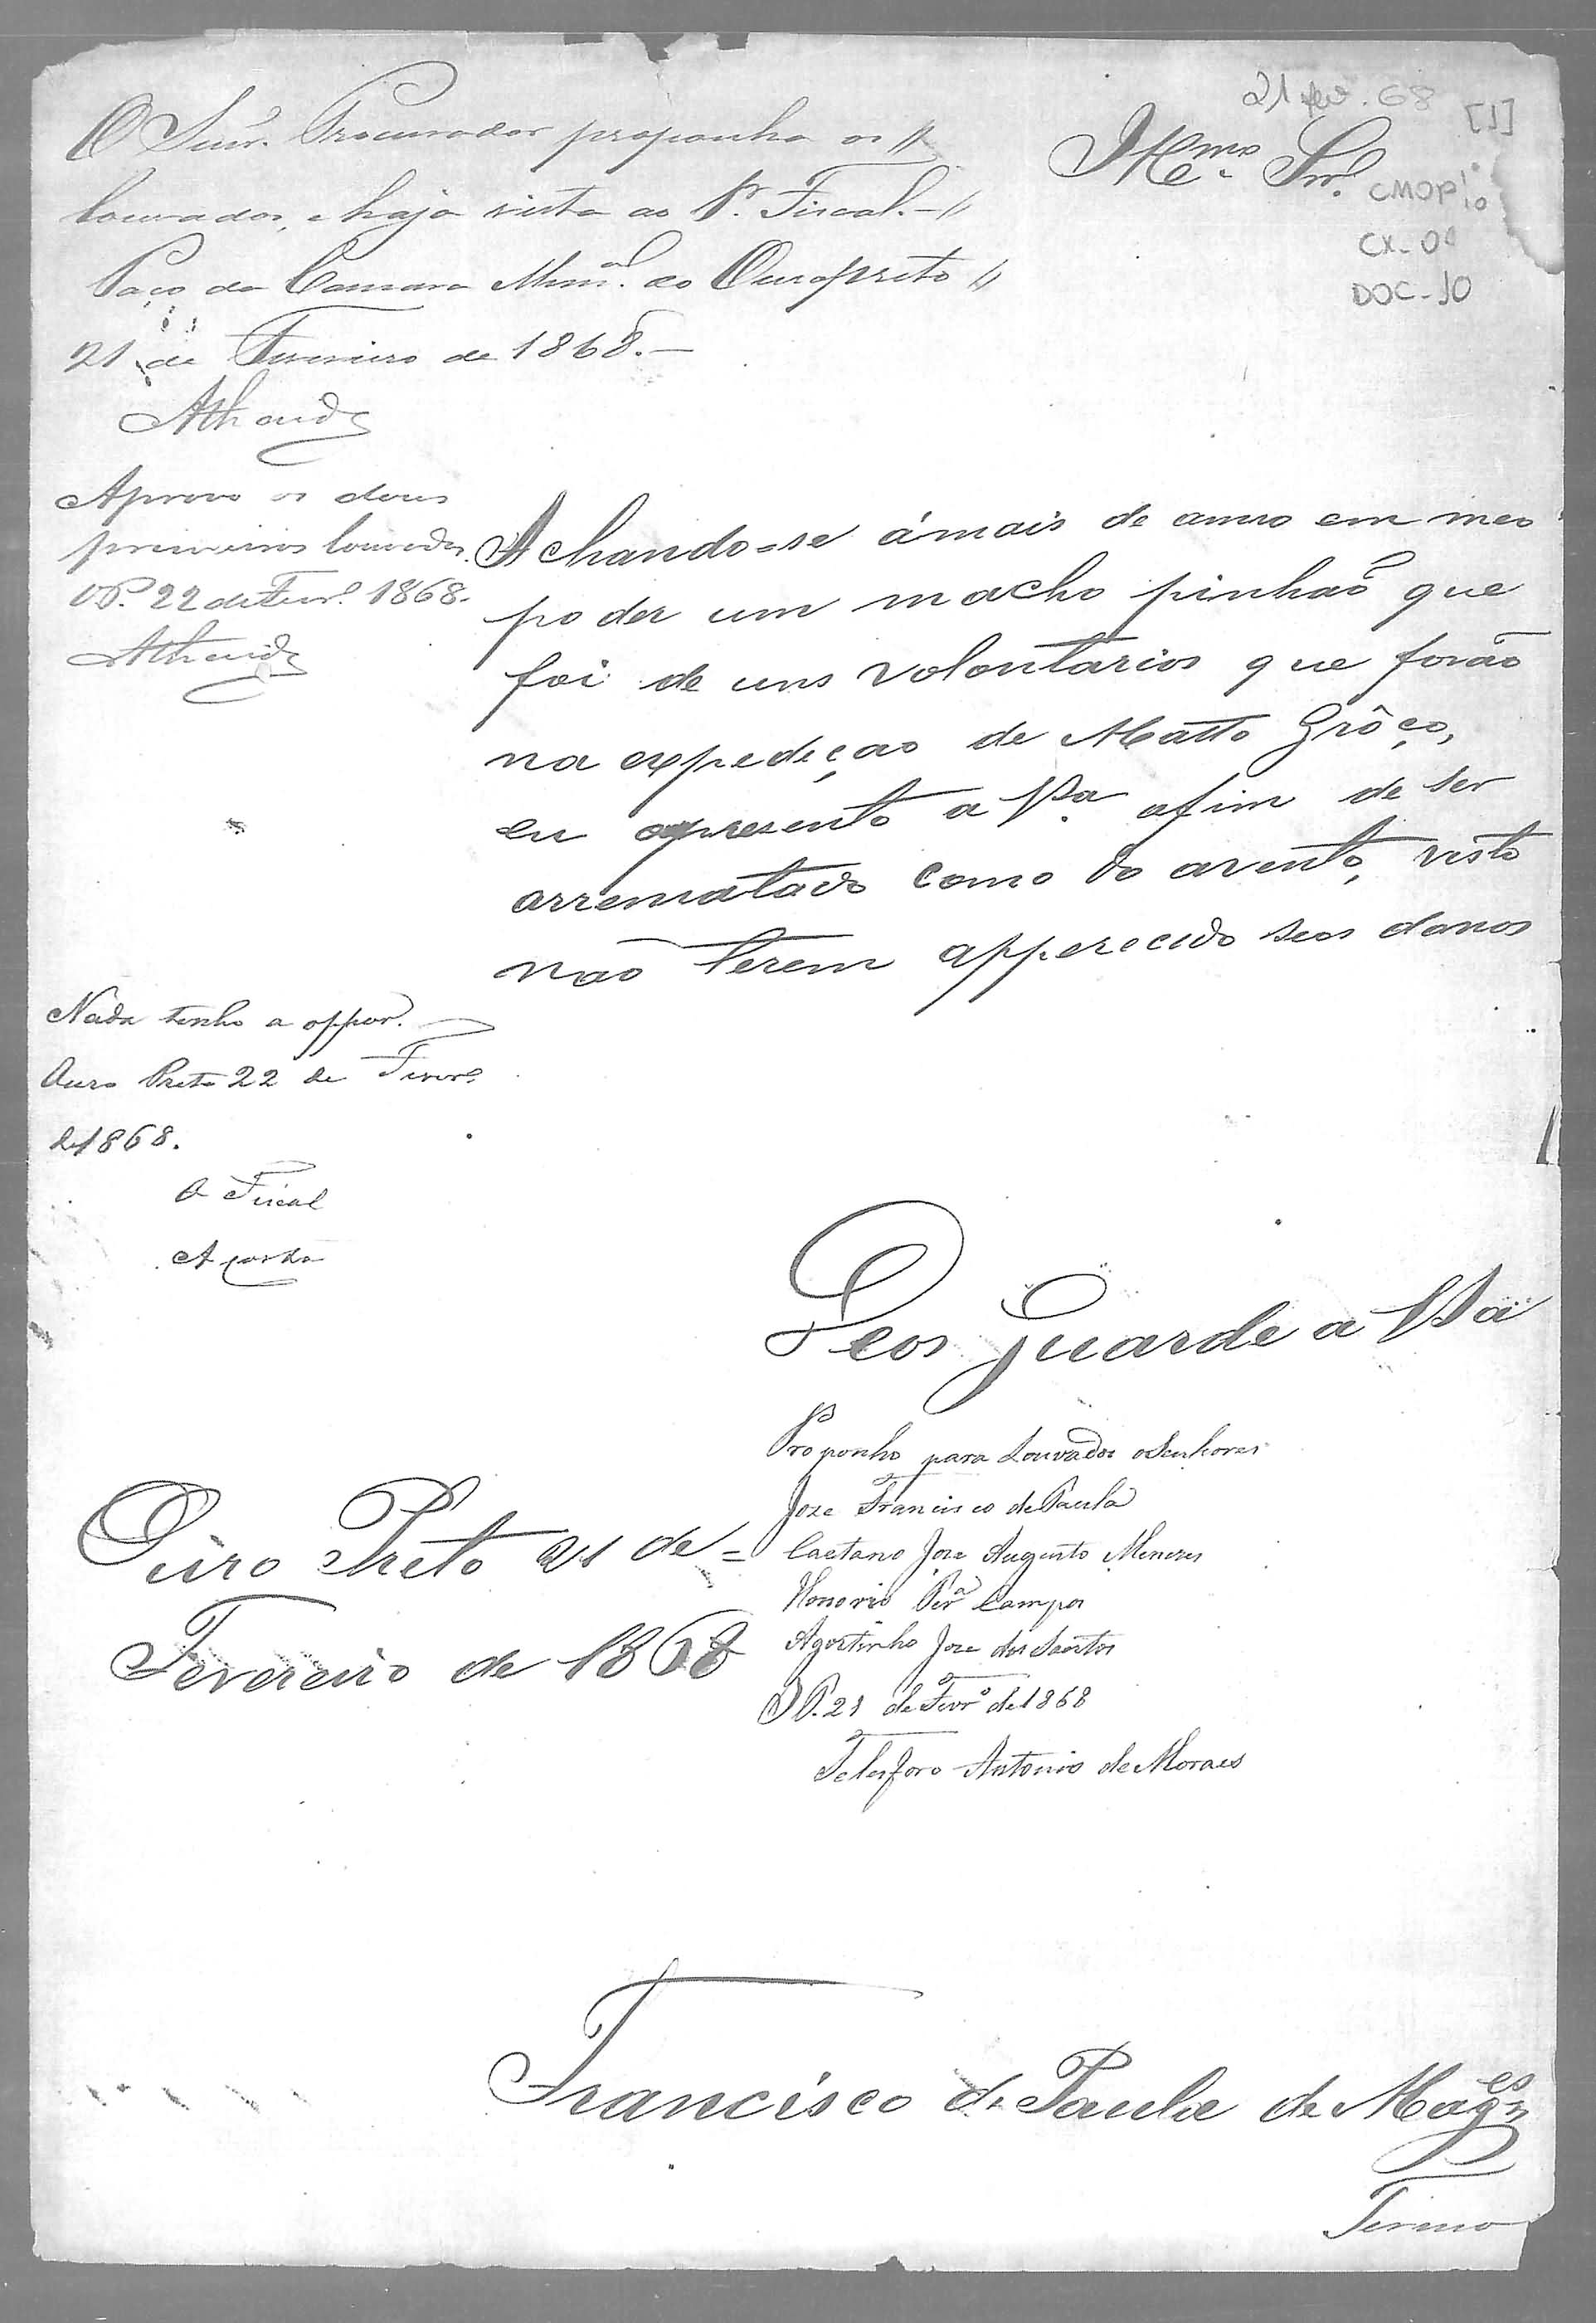 21 fev. 68
[1]
CMOP
CX-01
DOC-10
O Senr. Procurador proponha os //
louvados, e haja vista ao Sr. Fiscal.- //
Paço da Camara Munal. do Ouropreto //
21 de Fevereiro de 1868.-
Athaide
Illmo. Snr.
Aprovo os dous
primeiros louvados.
O.P. 22 de Fevro. 1868.
Athaide
Achando=se ámais de anno em meo
poder um macho pinhão que
foi de uns volontarios que forão
na expedeçao de Matto Grôço,
eu apresento a VSa. afim de ser
arrematado como do avento, visto
não terem apperecido seos donos
Nada tenho a oppor.
Ouro Preto 22 de Fevro.
de 1868.
O Fiscal
A Costa
Deos Guarde a VSa
Ouro Preto 21 de =
Fevereiro de 1868
Proponho para Louvados os Senhores
Joze Francisco de Paula
Caetano Joze Augusto Menezes
Honorio Pera Campos
Agostinho Joze dos Santos
O P. 21 de Fevro de 1868
Telesforo Antonio de Moraes
Francisco de Paula de Mages
Termo